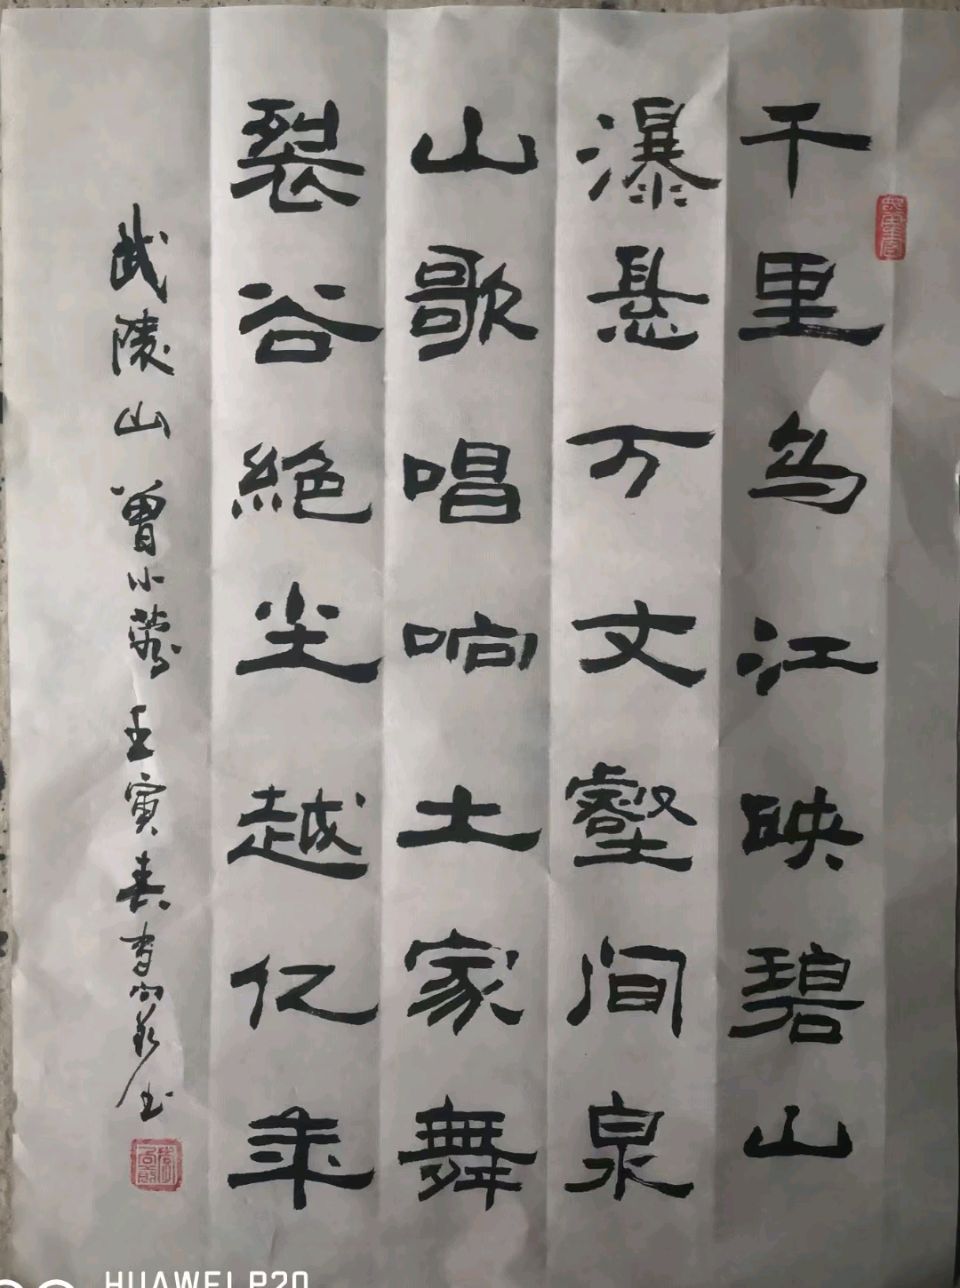 千里乌江映碧山
瀑悬万丈壑间泉
山歌唱响土家舞
裂谷絶尘越亿年
武陵山 曾小燕 壬寅春
HUAWEI P20